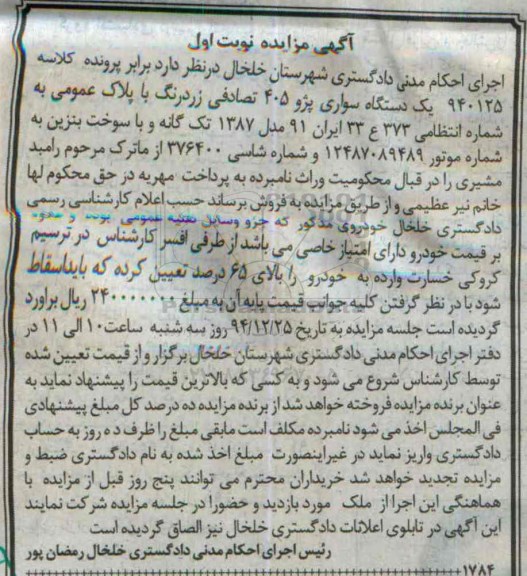 آگهی مزایده نوبت اول
اجرای احکام مدنی دادگستری شهرستان خلخال درنظر دارد برابر پرونده کلاسه
۹۴۰۱۲۵ یک دستگاه سواری پژو ۴۰۵ تصادفی زردرنگ با پلاک عمومی به
شماره انتظامی ۳۷۳ ع ۳۳ ایران ۹۱ مدل ۱۳۸۷ تک گانه و با سوخت بنزین به
شماره موتور ۱۲۴۸۷۰۸۹۴۸۹ و شماره شاسی ۳۷۶۴۰۰ از ماترک مرحوم رامبد
مشیری را در قبال محکومیت وراث نامبرده به پرداخت مهریه در حق محکوم لها
خانم نیر عظیمی و از طریق مزانده به فروش برساند حسب اعلام کارشناسی رسمی
دادگستری خلخال خودروی مذکور که جزو وسایل نقلیه عمومی بوده و
بر قیمت خودرو دارای امتیاز خاصی می باشد از طرفی افسر کارشناس در ترسیم
کروکی خسارت وارده به خودرو را بالای ۶۵ درصد تعیین کرده که بایداسقاط
شود با در نظر گرفتن کلیه جوانب قیمت پایه آن به مبلغ ۲۴۰۰۰۰۰۰۰ ریال براورد
گردیده است جلسه مزایده به تاریخ ۹۴/۱۲/۲۵ روز سه شنبه ساعت ۱۰ الی ۱۱ در
دفتر اجرای احکام مدنی دادگستری شهرستان خلخال برگزار و از قیمت تعیین شده
توسط کارشناس شروع می شود و به کسی که بالاترین قیمت را پیشنهاد نماید به
عنوان برنده مزایده فروخته خواهد شد از برنده مزایده ده درصد کل مبلغ پیشنهادی
فی المجلس اخذ می شود نامبرده مکلف است مابقی مبلغ را ظرف ده روز به حساب
دادگستری واریز نماید در غیراینصورت مبلغ اخذ شده به نام دادگستری ضبط و
مزایده تجدید خواهد شد خریداران محترم می توانند پنج روز قبل از مزایده با
هماهنگی این اجرا از ملک مورد بازدید و حضورا در جلسه مزایده شرکت نمایند
این آگهی در تابلوی اعلانات دادگستری خلخال نیز الصاق گردیده است
رئیس اجرای احکام مدنی دادگستری خلخال رمضان پور
۱۷۸۴